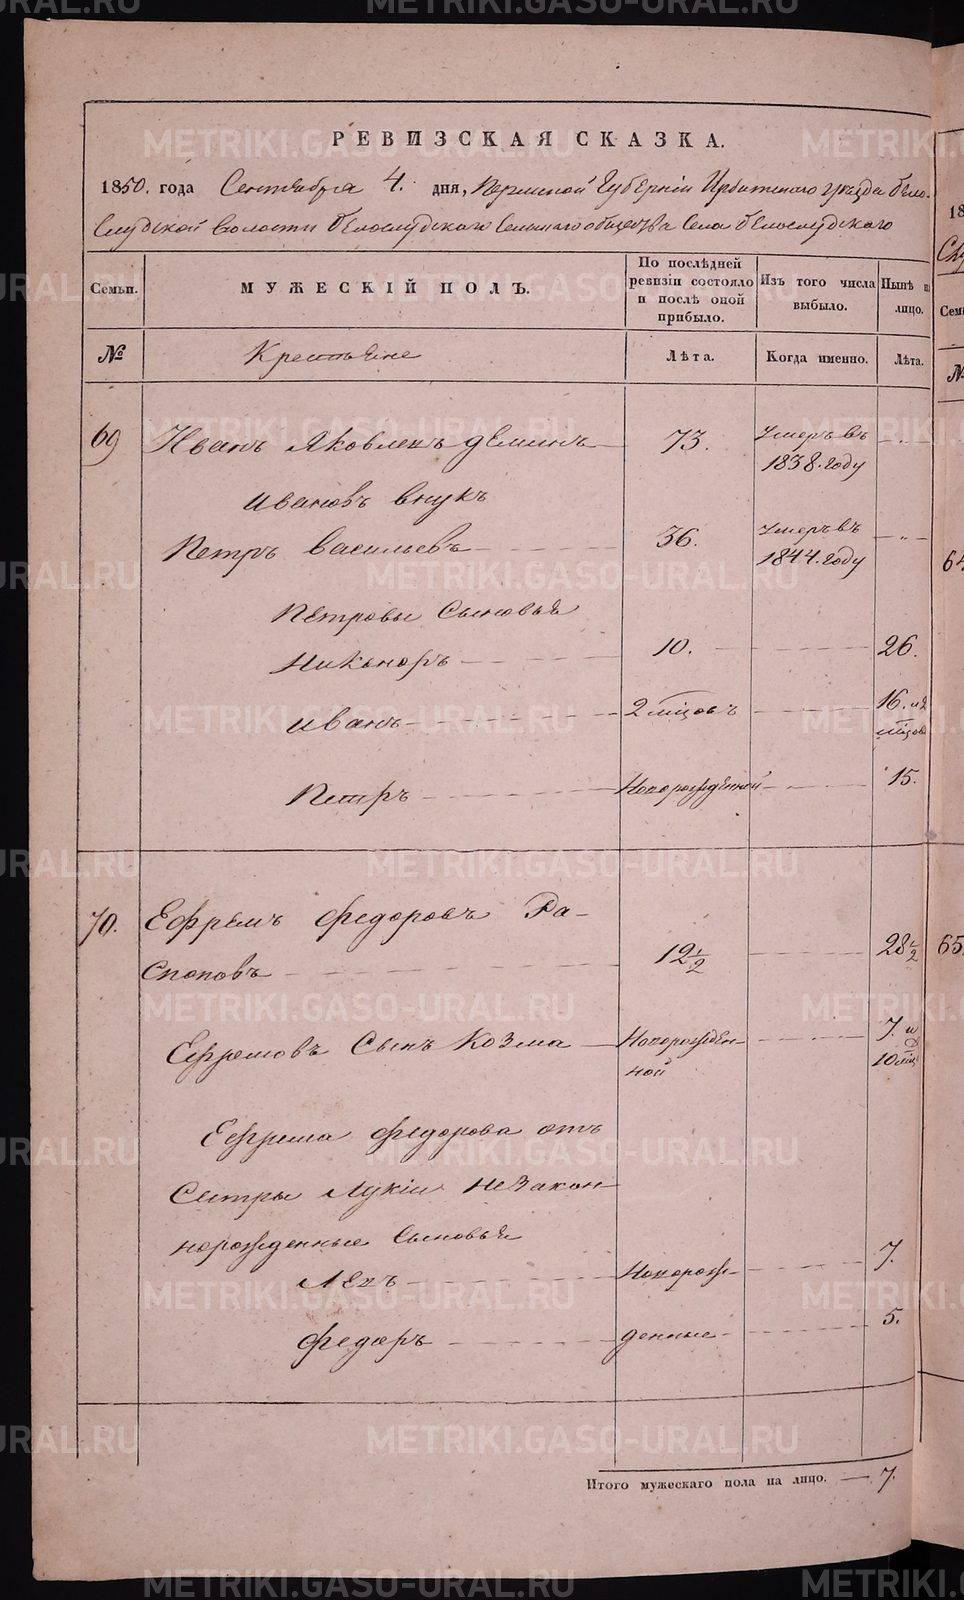 РЕВИЗСКАЯ СКАЗКА.
1850. года Сентября 4. дня, Пермской Губерніи Ирбитскаго уѣзда Бѣло-
слудской волости Бѣлослудского сельскаго общества села Бѣлослудского
Семьи.
МУЖЕСКІЙ ПОЛЪ.
По послѣдней ревизіи состояло и послѣ оной прибыло.
Изъ того числа выбыло.
Нынѣ н лицо.
№
Крестьяне
Лѣта.
Когда именно.
Лѣта.
69 Иванъ Яковлевъ Деминъ 73. Умеръ въ 1838. году - " -
Ивановъ внукъ
Петръ Васильевъ 36. Умеръ въ 1844. году - " -
Петровы сыновья
Никоноръ 10. 26.
Иванъ 2 мѣцовъ 16. и 2 мѣцов
Петръ Новорожденной 15.
70. Ефремъ Федоровъ Ра-
споповъ 12 1/2 28 1/2
Ефремовъ сынъ Козма Новорожден-
ной 7. и 10 мѣц
Ефрема Федорова отъ
сестры Лукіи незакон-
норожденные сыновья
Левъ Новорож- 7.
Федоръ денные 5.
Итого мужескаго пола на лицо. — 7.
18
Сл
Семь
№
64
65.
METRIKI.GASO-URAL.RU